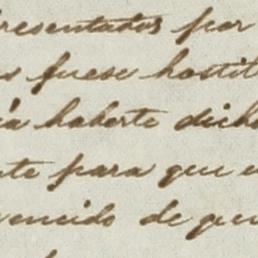 resentados por
s fuese hostil
ía haberte dicho
te para que
encido de que